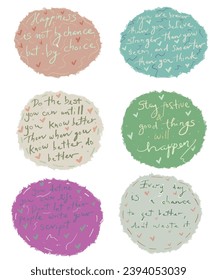 Happiness
is not by chance,
but by choice
You are braver
than you believe
stronger than you
seem, and smarter
than you think
Do the best
you can until
you know better.
Then when you
know better, do
better
Stay positive
good things
will
happen
Every day
is a chance
to get better.
don't waste it
shutterstock
IMAGE ID: 2394053039
www.shutterstock.com